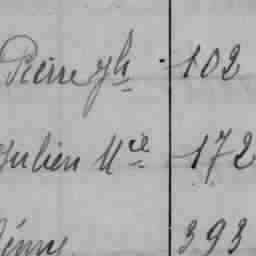 Pierre 102
Julien Mce 172
393